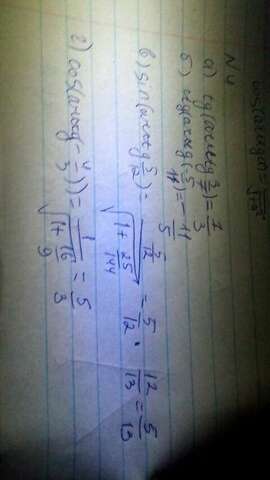 N4
a) tg(arcctg 3/7) = 7/3
б) ctg(arcctg(-5/11)) = -11/5
в) sin(arcctg 5/12) = (5/12)/√(1+25/144) = 5/12 · 12/13 = 5/13
г) cos(arcctg-4/3)) = 1/√(1+16/9) = 5/3